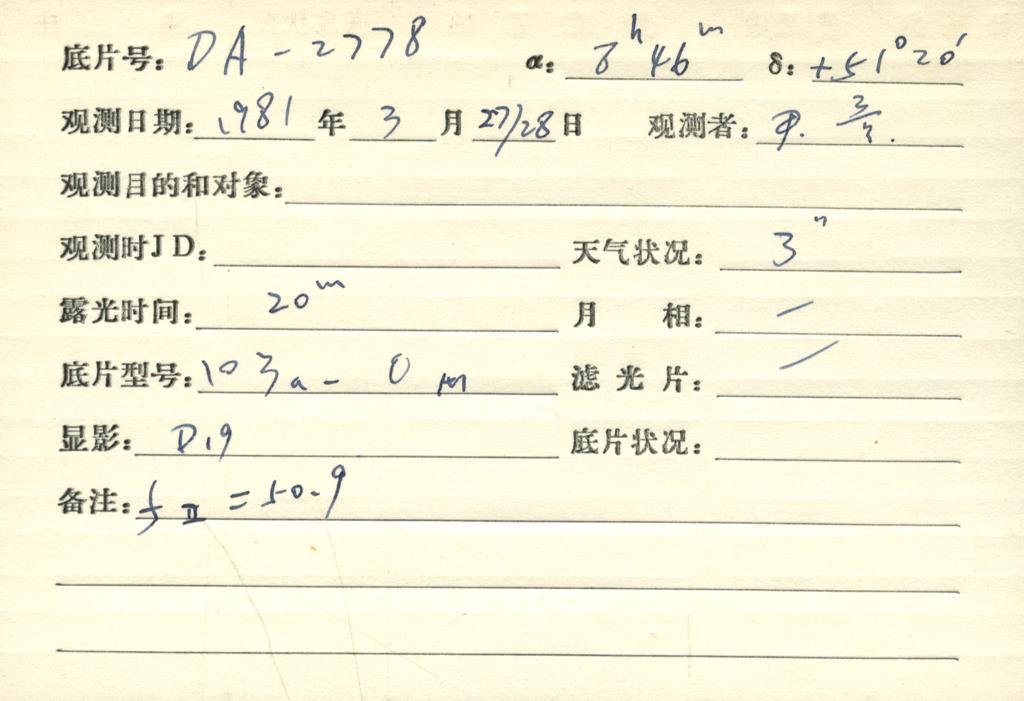 底片号: DA-2778 α: 8h 46m δ: +51°20′
观测日期: 1981 年 3 月 27/28 日 观测者:
观测目的和对象:
观测时JD: 天气状况: 3
露光时间: 20m 月 相: —
底片型号: 103a-O 滤光片: —
显影: D.19 底片状况:
备注: f II = 50.9